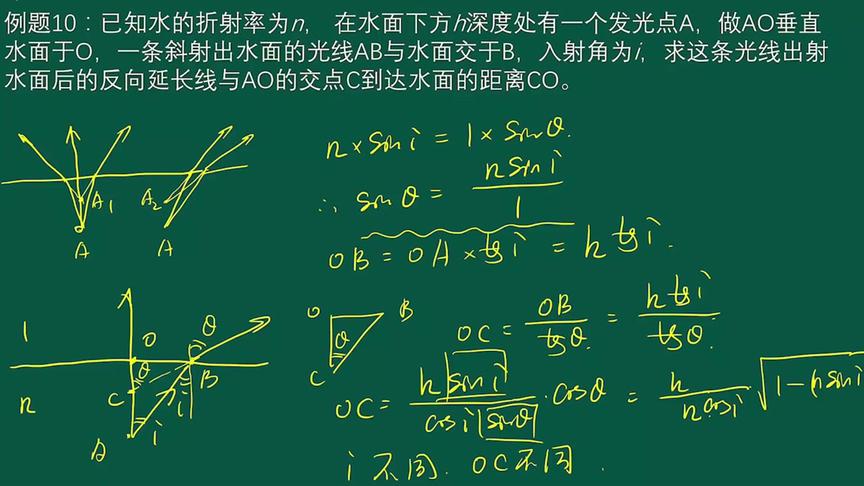 例题10：已知水的折射率为n， 在水面下方h深度处有一个发光点A，做AO垂直
水面于O，一条斜射出水面的光线AB与水面交于B，入射角为i，求这条光线出射
水面后的反向延长线与AO的交点C到达水面的距离CO。
A₁ A₂
A A
n × sin i = 1 × sin θ.
∴ sin θ = n sin i / 1
OB = OA × tg i = h tg i.
1 O θ
θ B
C i
n
A i
O B
θ
C
OC = OB / tg θ = h tg i / tg θ.
OC = h sin i / cos i sin θ · cos θ = h / n cos i √1-(n sin i
i 不同. OC不同.